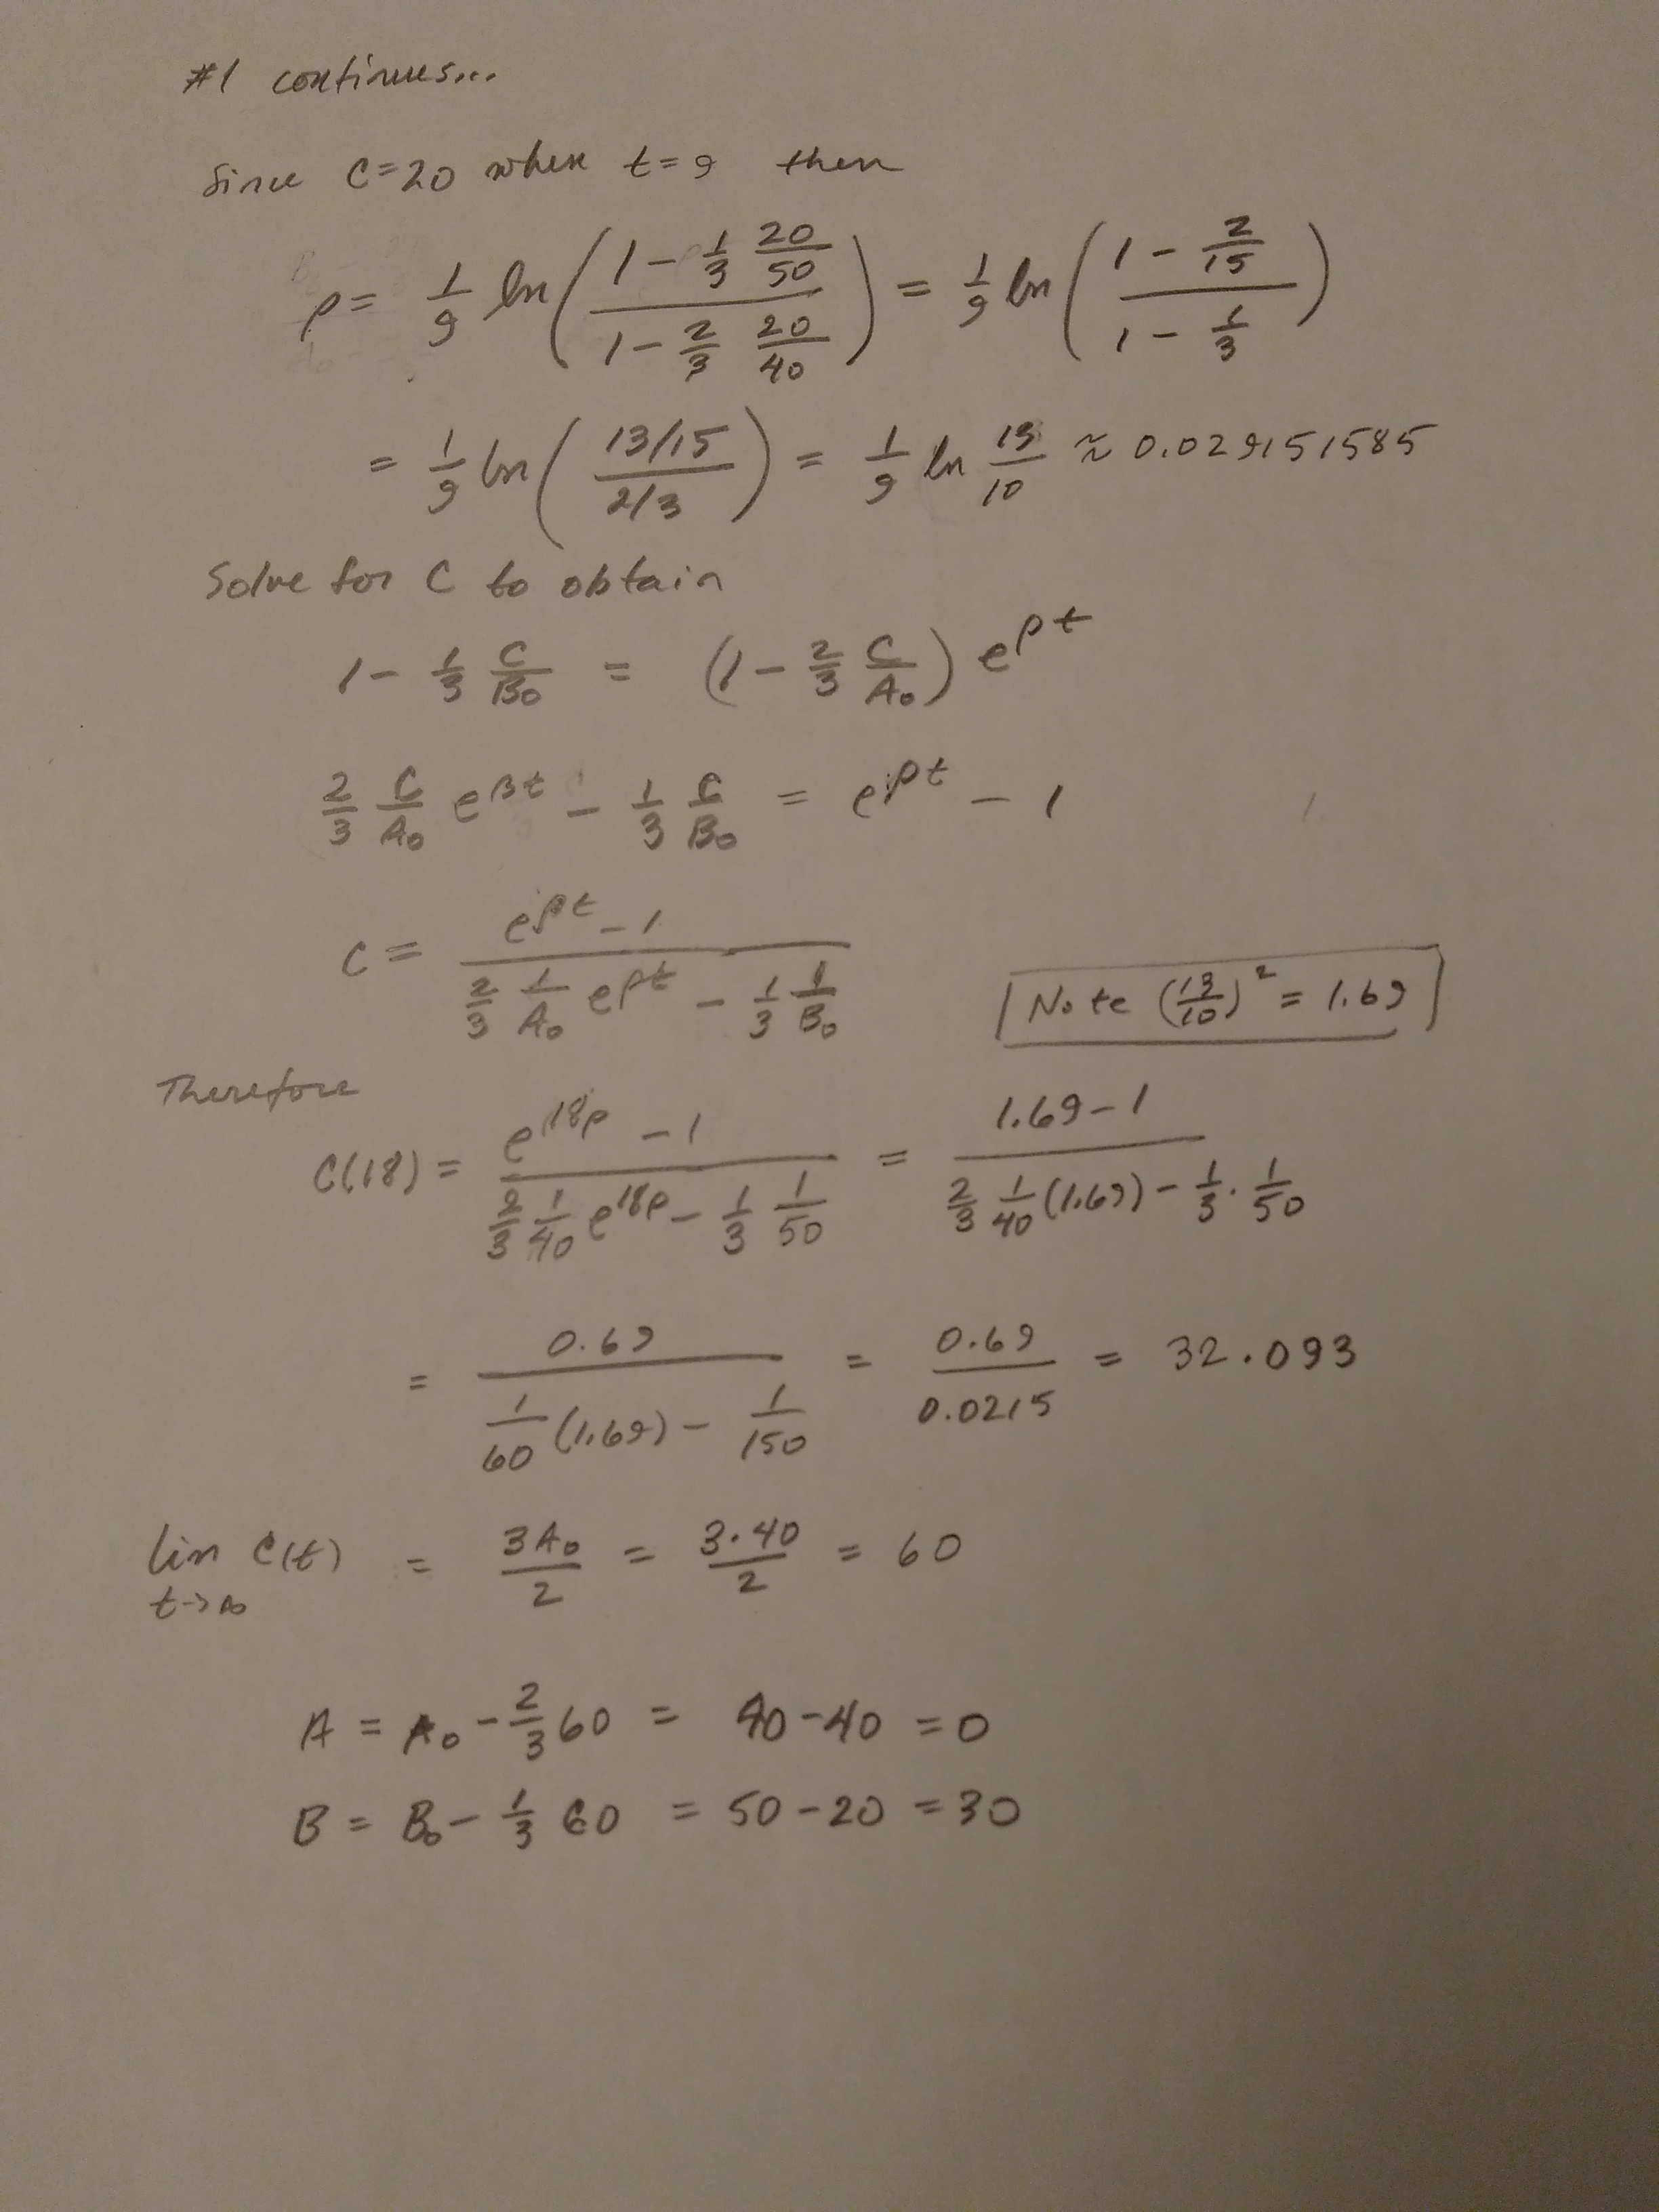 #1 continues...
Since C=20 when t=9 then
ρ = 1/9 ln( (1 - 1/3 20/50) / (1 - 2/3 20/40) ) = 1/9 ln( (1 - 2/15) / (1 - 1/3) )
= 1/9 ln( (13/15) / (2/3) ) = 1/9 ln 13/10 ≈ 0.029151585
Solve for C to obtain
1 - 1/3 C/B₀ = (1 - 2/3 C/A₀) e^ρt
2/3 C/A₀ e^βt - 1/3 C/B₀ = e^ρt - 1
C = (e^ρt - 1) / (2/3 1/A₀ e^ρt - 1/3 1/B₀)
Note (13/10)² = 1.69
Therefore
C(18) = (e^18ρ - 1) / (2/3 1/40 e^18ρ - 1/3 1/50) = (1.69 - 1) / (2/3 1/40 (1.69) - 1/3 · 1/50)
= 0.69 / (1/60 (1.69) - 1/150) = 0.69 / 0.0215 = 32.093
lim t→∞ C(t) = 3A₀/2 = 3·40/2 = 60
A = A₀ - 2/3 60 = 40 - 40 = 0
B = B₀ - 1/3 60 = 50 - 20 = 30